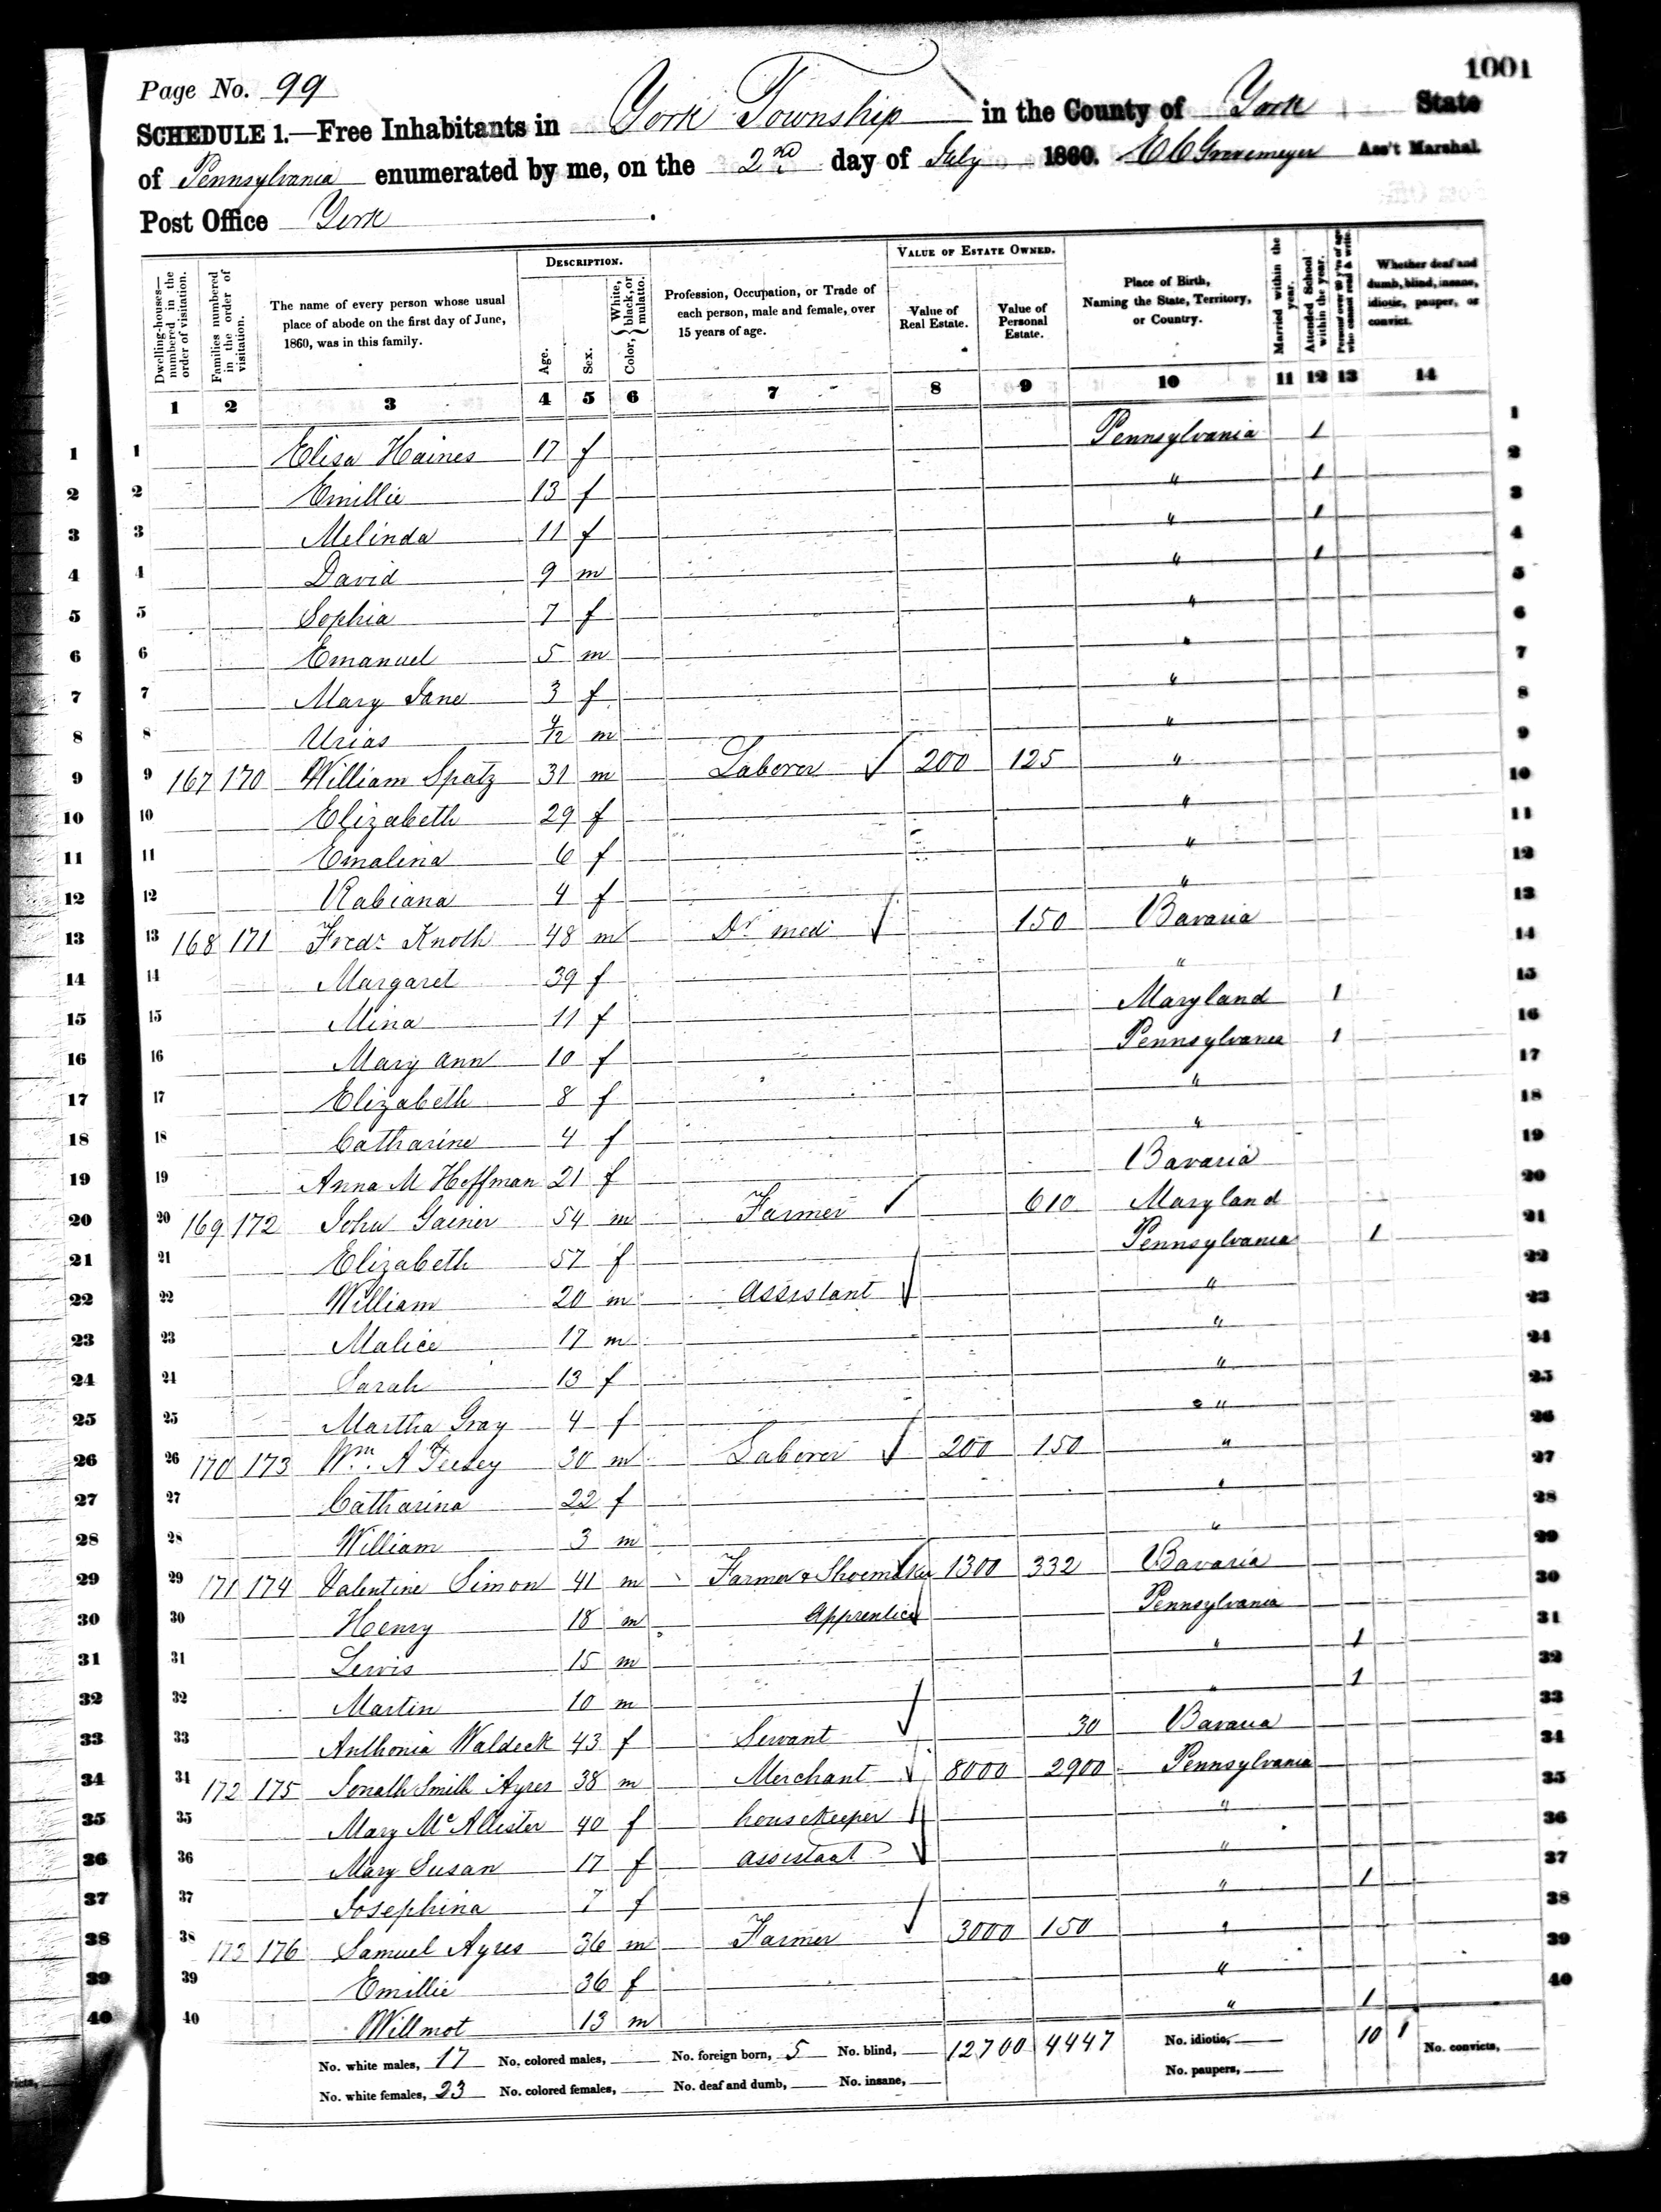 1001
Page No. 99
SCHEDULE 1.—Free Inhabitants in York Township in the County of York State
of Pennsylvania enumerated by me, on the 2nd day of July 1860. Ass't Marshal.
Post Office York
DESCRIPTION. VALUE OF ESTATE OWNED.
Dwelling-houses—numbered in the order of visitation. Families numbered in the order of visitation. The name of every person whose usual place of abode on the first day of June, 1860, was in this family. Age. Sex. Color, { White, black, or mulatto. Profession, Occupation, or Trade of each person, male and female, over 15 years of age. Value of Real Estate. Value of Personal Estate. Place of Birth, Naming the State, Territory, or Country. Married within the year. Attended School within the year. Persons over 20 y'rs of age who cannot read & write. Whether deaf and dumb, blind, insane, idiotic, pauper, or convict.
1 2 3 4 5 6 7 8 9 10 11 12 13 14
1 1 Elisa Haines 17 f Pennsylvania 1 1
2 2 Emillie 13 f " 1 2
3 3 Melinda 11 f " 1 3
4 4 David 9 m " 1 4
5 5 Sophia 7 f " 5
6 6 Emanuel 5 m " 6
7 7 Mary Jane 3 f " 7
8 8 Urias 4/12 m " 8
9 9 167 170 William Spatz 31 m Laborer 200 125 " 9
10 10 Elizabeth 29 f " 10
11 11 Emalina 6 f " 11
12 12 Rabiana 4 f " 12
13 13 168 171 Fredr Knoth 48 m Dr med 150 Bavaria 13
14 14 Margaret 39 f " 14
15 15 Mina 11 f Maryland 1 15
16 16 Mary Ann 10 f Pennsylvania 1 16
17 17 Elizabeth 8 f " 17
18 18 Catharine 4 f " 18
19 19 Anna M Hoffman 21 f Bavaria 19
20 20 169 172 John Gainer 54 m Farmer 610 Maryland 20
21 21 Elizabeth 57 f Pennsylvania 1 21
22 22 William 20 m Assistant " 22
23 23 Malice 17 m " 23
24 24 Sarah 13 f " 24
25 25 Martha Gray 4 f " 25
26 26 170 173 Wm. A 30 m Laborer 200 150 " 26
27 27 Catharina 22 f " 27
28 28 William 3 m " 28
29 29 171 174 Valentine Simon 41 m Farmer & Shoemaker 1300 332 Bavaria 29
30 30 Henry 18 m Apprentice Pennsylvania 30
31 31 Lewis 15 m " 1 31
32 32 Martin 10 m " 1 32
33 33 Anthonia Waldeck 43 f Servant 30 Bavaria 33
34 34 172 175 Smith Ayres 38 m Merchant 8000 2900 Pennsylvania 34
35 35 Mary McAllister 40 f housekeeper " 35
36 36 Mary Susan 17 f assistant " 36
37 37 Josephina 7 f " 1 37
38 38 173 176 Samuel Ayres 36 m Farmer 3000 150 " 38
39 39 Emillie 36 f " 39
40 40 Willmot 13 m " 1 40
No. white males, 17 No. colored males, No. foreign born, 5 No. blind, 12700 4447 No. idiotic, 10 1 No. convicts,
No. white females, 23 No. colored females, No. deaf and dumb, No. insane, No. paupers,